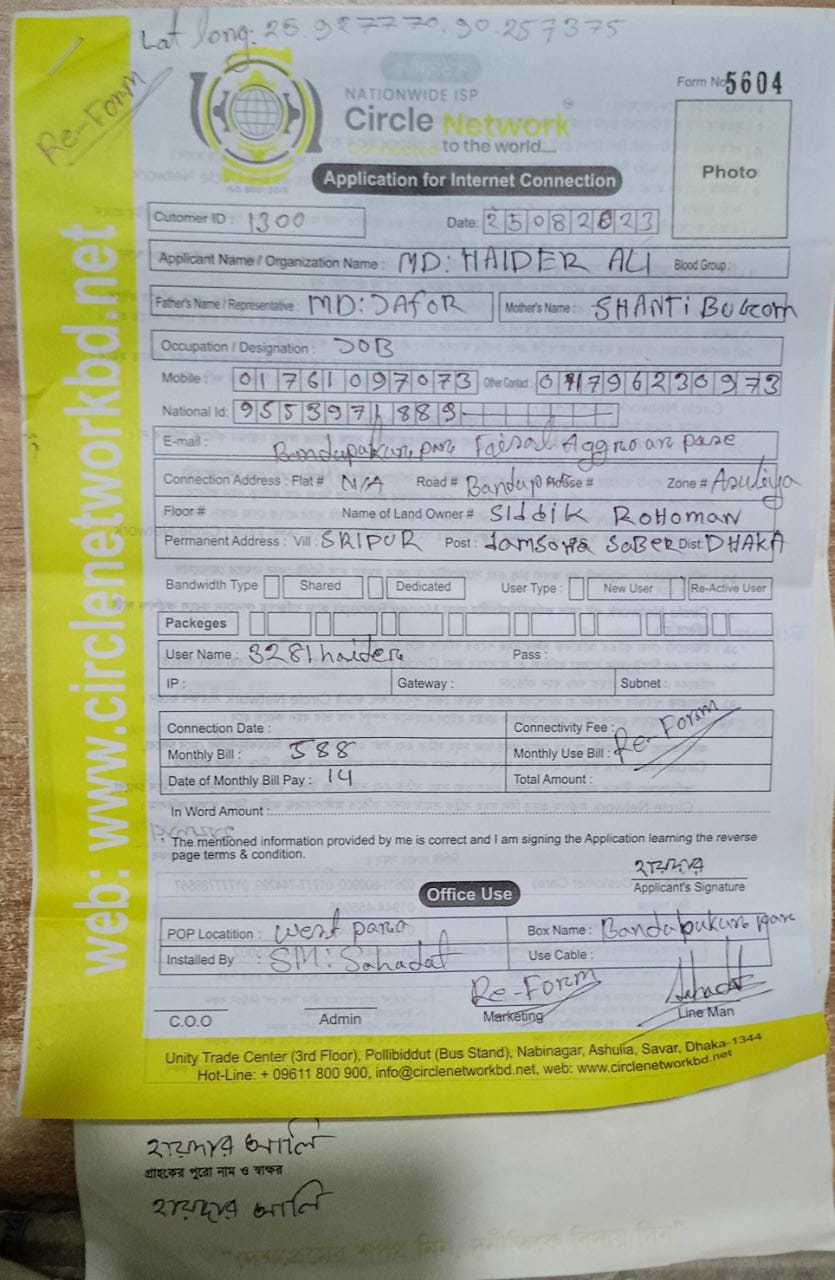 Lat long: 26.927770.90.257375
Re-Form
NATIONWIDE ISP
Circle Network
Connected to the world....
ISO 9001:2015
Form No 5604
Photo
Application for Internet Connection
Cutomer ID : 1300 Date: 25082023
Applicant Name / Organization Name : MD: HAIDER ALI Blood Group :
Father's Name / Representative : MD: JAfOR Mother's Name : SHANTi BuGom
Occupation / Designation : JOB
Mobile : 01761097073 Other Contact : 01796230973
National Id: 9553971889
E-mail : Bandupukur para Faisal Aggroan pare
Connection Address : Flat # N/A Road # Bandup House # Zone # Asuliya
Floor # Name of Land Owner # SIddik ROHOMAN
Permanent Address : Vill : SRIPUR Post : Jamsora SaBER Dist: DHAKA
Bandwidth Type Shared Dedicated User Type : New User Re-Active User
Packeges
User Name : 3281haider Pass :
IP : Gateway : Subnet :
Connection Date : Connectivity Fee :
Monthly Bill : 588 Monthly Use Bill : Re-Form
Date of Monthly Bill Pay : 14 Total Amount :
In Word Amount :
The mentioned information provided by me is correct and I am signing the Application learning the reverse
page terms & condition.
হায়দার
Applicant's Signature
Office Use
POP Locatition : west para Box Name : Bandupukur para
Installed By : SM: Sahadat Use Cable :
Re-Form Sahadat
C.O.O Admin Marketing Line Man
Unity Trade Center (3rd Floor), Pollibiddut (Bus Stand), Nabinagar, Ashulia, Savar, Dhaka-1344
Hot-Line: + 09611 800 900, info@circlenetworkbd.net, web: www.circlenetworkbd.net
web: www.circlenetworkbd.net
হায়দার আলি
গ্রাহকের পুরো নাম ও স্বাক্ষর
হায়দার আলি